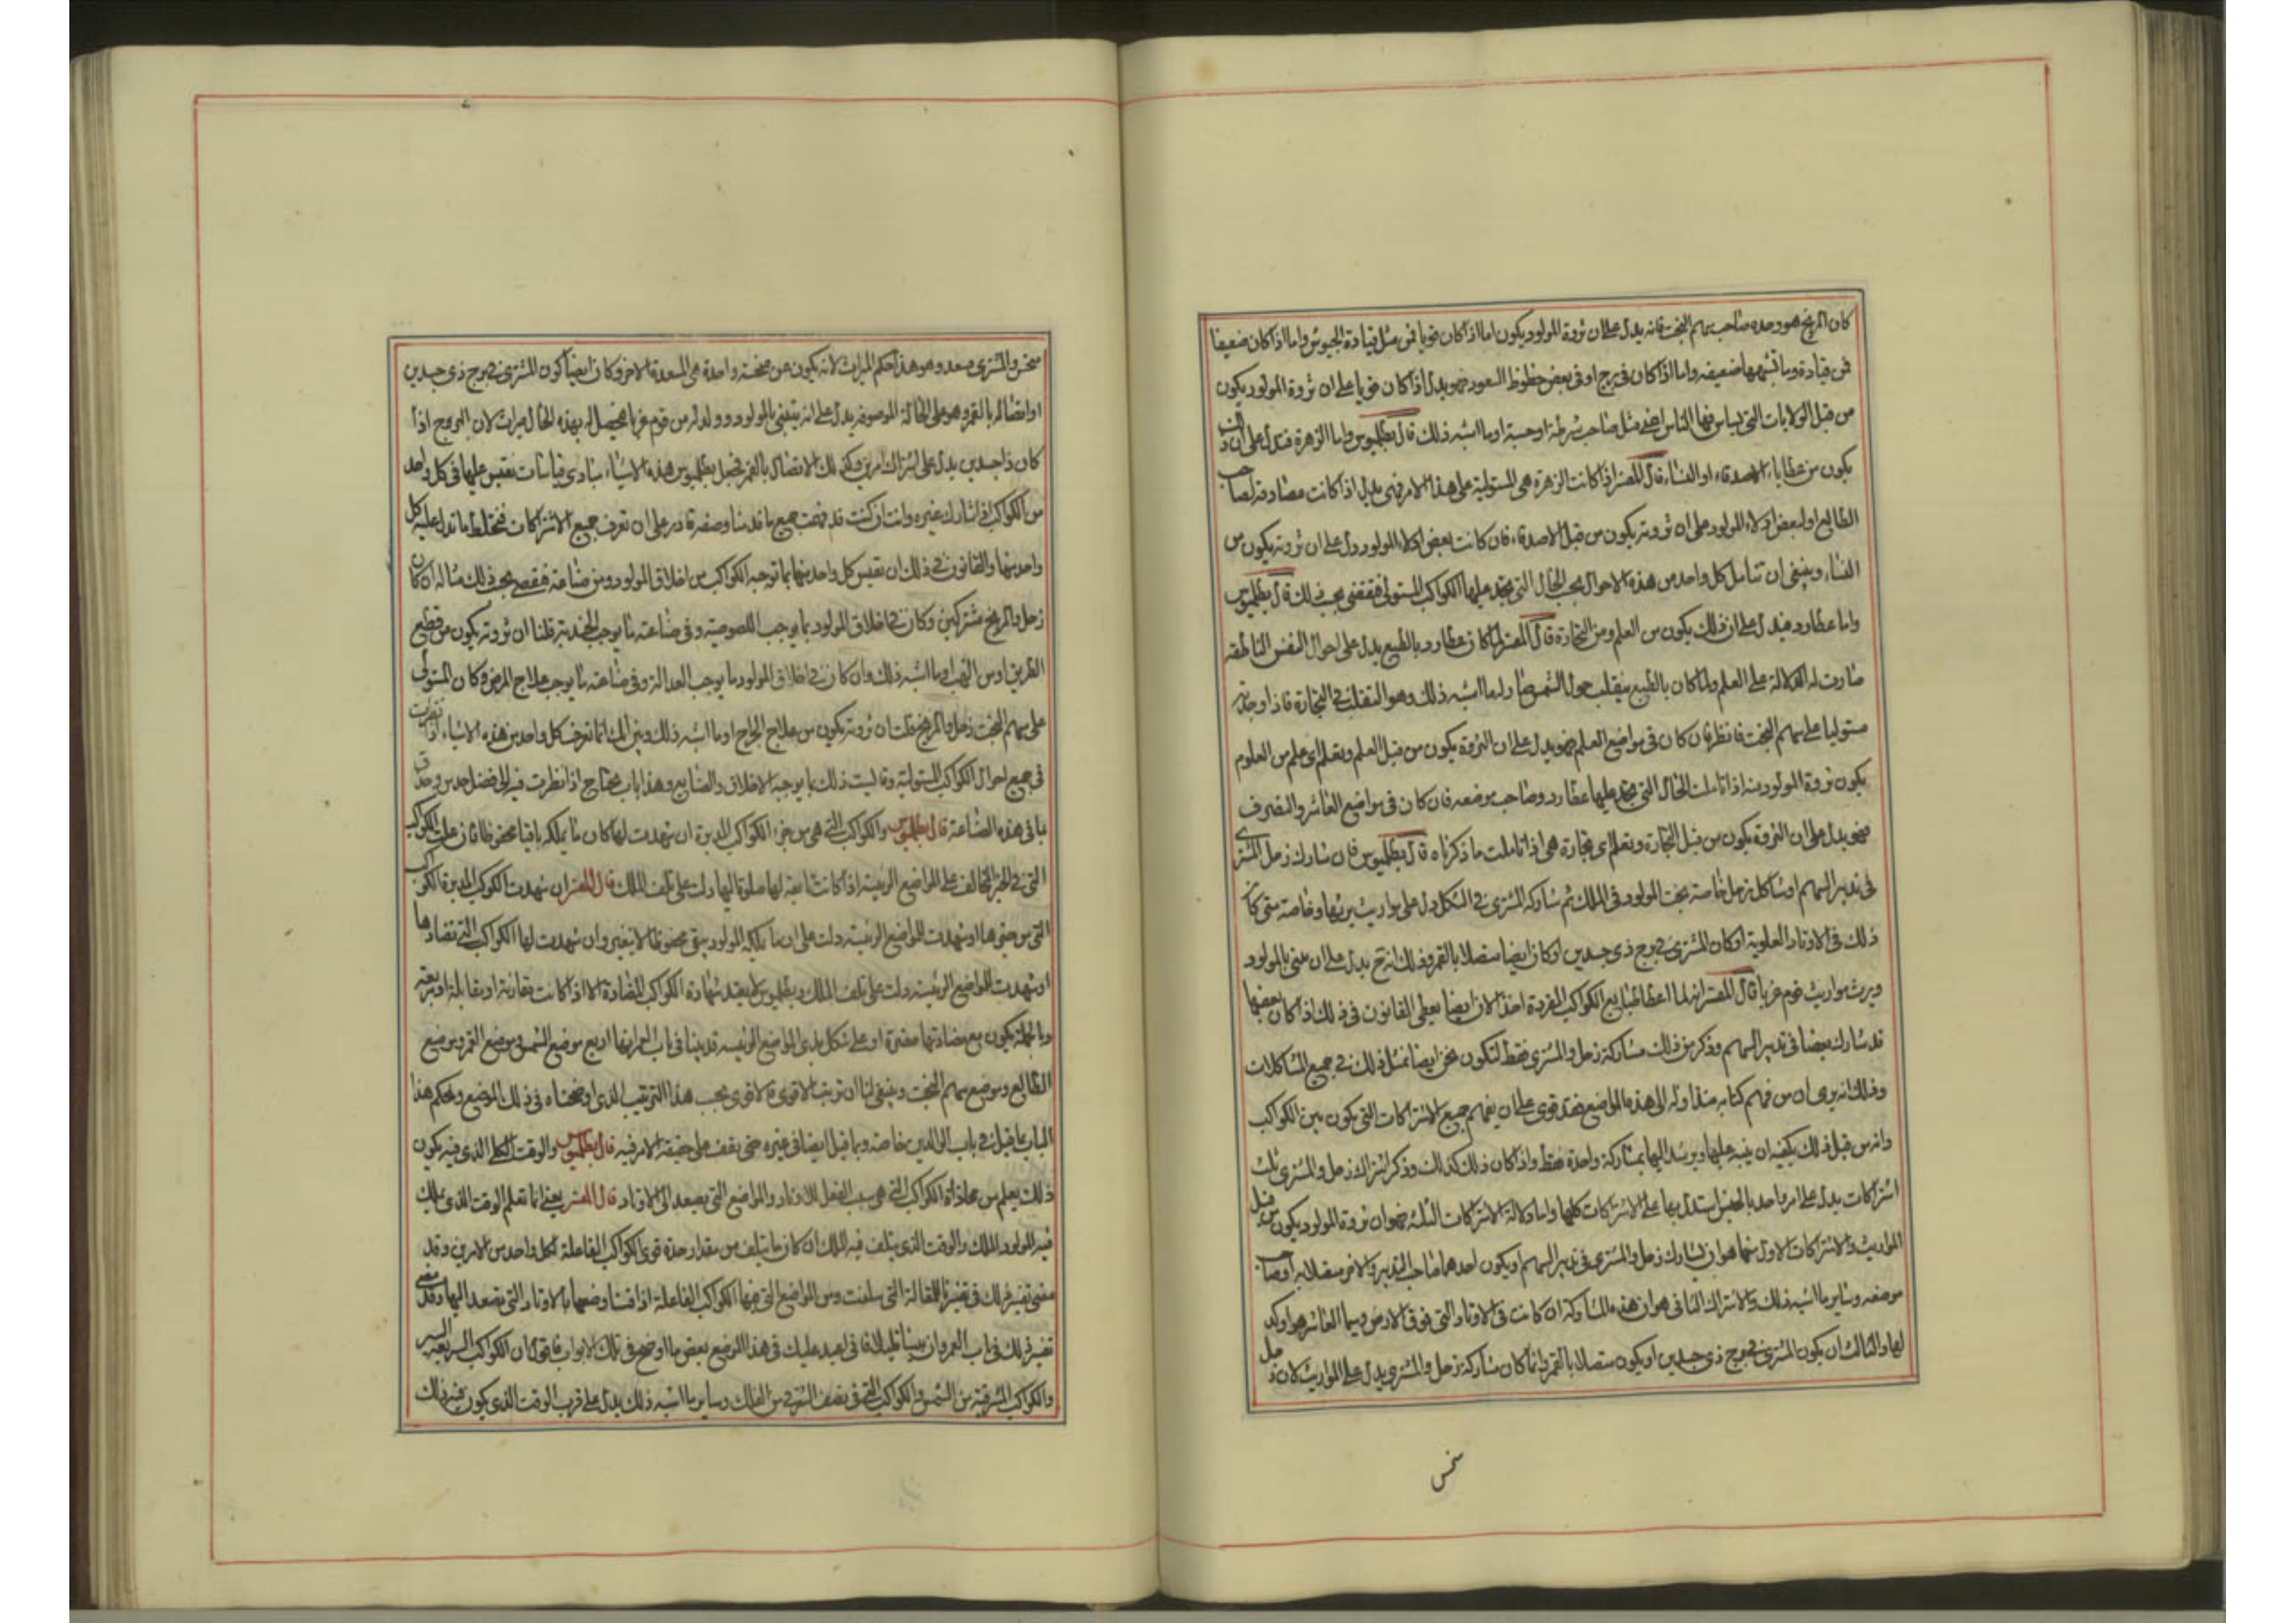 كان المريخ هو وحده صاحب سهم البخت فانه يدل على ان ثروة المولود يكون اما اذا كان قويا فمن مثل قيادة الجيوش واما اذا كان ضعيفا
فمن قيادة وما اشبهها ضعيفه واما اذا كان في برج او في بعض حظوظ السعود فهو يدل اذا كان قويا على ان ثروة المولود يكون
من قبل الولايات التي يساس فيها الناس مثل صاحب شرطة او حسبة او ما اشبه ذلك قال بطلميوس واما الزهرة فتدل على ان ذلك
يكون من عطايا الاصدقاء او النساء قال المفسر اذا كانت الزهرة هي المستولية على هذا الامر فهي يدل اذا كانت مصادقة لصاحب
الطالع او لبعض ادلاء المولود على ان ثروته يكون من قبل الاصدقاء فان كانت بعض ادلاء المولود دل على ان ثروته يكون من
النساء وينبغي ان تتامل كل واحد من هذه الاحوال بحسب الحال التي تجد عليها الكواكب المستولي فتقضي بحسب ذلك قال بطلميوس
واما عطارد فيدل على ان ذلك يكون من العلم ومن التجارة قال المفسر لما كان عطارد بالطبع يدل على احوال النفس الناطقه
صارت له الدلالة على العلم ولما كان بالطبع يتقلب حول الشمس صار له ما اشبه ذلك وهو التقلب في التجارة فاذا وجدته
مستوليا على سهم البخت فانظر فان كان في مواضع العلم فهو يدل على ان الثروة يكون من قبل العلم وتعلم اي علم من العلوم
يكون ثروة المولود منه اذا تاملت الحال التي تجد عليها عطارد وصاحب موضعه فان كان في مواضع العاشر والتصرف
فهو يدل على ان الثروة يكون من قبل التجارة وتعلم اي تجارة هي اذا تاملت ما ذكرناه قال بطلميوس فان شارك زحل المشتري
في تدبير السهم او شاكل زحل خاصة بخت المولود في الملك ثم شاركه المشتري في الشكل دل على مواريث يرثها وخاصة متى كان
ذلك في الاوتاد العلوية او كان المشتري في برج ذي جسدين او كان ايضا متصلا بالقمر وذلك انه حينئذ يدل على ان يتبنى بالمولود
ويرث مواريث قوم غربا قال المفسر انه لما اعطا طبايع الكواكب المفردة اخذ الان ايضا يعطي القانون في ذلك اذا كان بعضها
قد شارك بعضا في تدبير السهم وذكر من ذلك مشاركة زحل والمشتري فقط لتكون نحن ايضا نمثل ذلك في جميع المشاكلات
وذلك انه يرى ان من فهم كتابه منذ اوله الى هذه المواضع فقد قوي على ان يفهم جميع الاشتراكات التي يكون بين الكواكب
وانه من قبل ذلك يكفيه ان ينبه عليها ويرشد اليها بمشاركة واحدة فقط واذا كان ذلك كذلك وذكر اشتراك زحل والمشتري ثلث
اشتراكات يدل على امر واحد بالجنس استدل بها على الاشتراكات كلها واما دلالة الاشتراكات الثلثه فهو ان ثروة المولود يكون من قبل
المواريث والاشتراكات الاول منها هو ان يشارك زحل والمشتري في تدبير السهم او يكون احدهما صاحب التدبير والاخر متصلا به او صاحب
موضعه وساير ما اشبه ذلك والاشتراك الثاني هو ان هذه المشاركة ان كانت في الاوتاد التي فوق الارض وسيما العاشر هو اوكد
لها والثالث ان يكون المشتري في برج ذي جسدين او يكون متصلا بالقمر وانما كان مشاركة زحل والمشتري يدل على المواريث لان زحل
نحس
نحس والمشتري سعد وهو هذا حكم الميراث لانه يكون من منحسة واحدة هي المسعدة للاخر وكان ايضا كون المشتري في برج ذي جسدين
او اتصاله بالقمر وهو على الحالة الموصوفة يدل على انه يتبنى بالمولود وولد له من قوم غربا فيحصل له بهذه الحال ميراث لان البروج اذا
كان ذا جسدين يدل على اشتراك امرين وكذلك الاتصال بالقمر فجعل بطلميوس هذه الاشياء مبادي قياسات تقيس عليها في كل واحد
من الكواكب اذا شارك غيره وانت ان كنت قد فهمت جميع ما قدمنا وصفه قادر على ان تعرف جميع الاشتراكات فتخلط ما تدل عليه كل
واحد منها والقانون في ذلك ان تقيس كل واحد منها بما توجبه الكواكب من اخلاق المولود ومن صناعته فتقضي بحسب ذلك مثاله ان كان
زحل والمريخ مشتركين وكان في اخلاق المولود ما يوجب اللصوصية وفي صناعته ما يوجب الجندية قلنا ان ثروته يكون من قطع
الطريق او من النهب او ما اشبه ذلك وان كان في اخلاق المولود ما يوجب العدالة وفي صناعته ما يوجب علاج المرض وكان المستولي
على سهم البخت زحل والمريخ قلت ان ثروته يكون من علاج الجراح او ما اشبه ذلك وبين انك انما تعرف كل واحد من هذه الاشياء اذا نظرت
في جميع احوال الكواكب المستولية وقايست ذلك بما يوجبه الاخلاق والصنايع وهذا باب يحتاج اذا نظرت فيه الى فضل حدس وحذق
ما في هذه الصناعة قال بطلميوس والكواكب التي هي من حيز الكواكب المدبرة ان شهدت لها كان ما يملكه باقيا محفوظا فان علت الكواكب
التي في الحيز المخالف على المواضع الرئيسة اذا كانت تابعة لها صلوتا اليها دلت على تلف الملك قال المفسر ان شهدت الكواكب المدبرة الكواكب
التي من حيزها او شهدت للمواضع الرئيسة دلت على ان ما يملكه المولود يبقى محفوظا لا يتغير وان شهدت لها الكواكب التي تضادها
او شهدت للمواضع الرئيسة دلت على تلف الملك وبطلميوس لا يعتد شهادة الكواكب المضادة الا اذا كانت مقارنة او مقابلة او مربعة
وبالجملة يكون مع مضادتها مضرة او على شكل ردي المواضع الرئيسة قد بينا في باب العمر انها اربع موضع الشمس وموضع القمر وموضع
الطالع وموضع سهم البخت وينبغي لنا ان نرتب الاقوى فالاقوى بحسب هذا الترتيب الذي اوضحناه في ذلك الموضع ونحكم هذا
الباب بما قيل في باب الوالدين خاصة وبما قيل ايضا في غيره حتى نقف على حقيقة الامر فيه قال بطلميوس والوقت الكلي الذي فيه يكون
ذلك يعلم من محاذاة الكواكب التي هي سبب الفعل للاوتاد والمواضع التي تصعد الى الاوتاد قال المفسر يعني انا نعلم الوقت الذي يملك
فيه المولود الملك والوقت الذي يتلف فيه الملك ان كان ما يتلف من مقدار حدة قوى الكواكب الفاعلة لكل واحد من الامرين وقد
مضى تفسير ذلك في تفسيرنا للمقالة التي سلفت ومن المواضع التي فيها الكواكب الفاعلة اذا قسنا وضعها بالاوتاد التي تصعد اليها وقد مضى
تفسير ذلك في باب العمر وان بينا قليلا فاني اعيد عليك في هذا الموضع بعض ما اوضح في تلك الابواب فاقول ان الكواكب السريعة السير
والكواكب المشرقية من الشمس والكواكب التي في نصف الشرقي من الفلك وساير ما اشبه ذلك يدل على قرب الوقت الذي يكون فيه ذلك